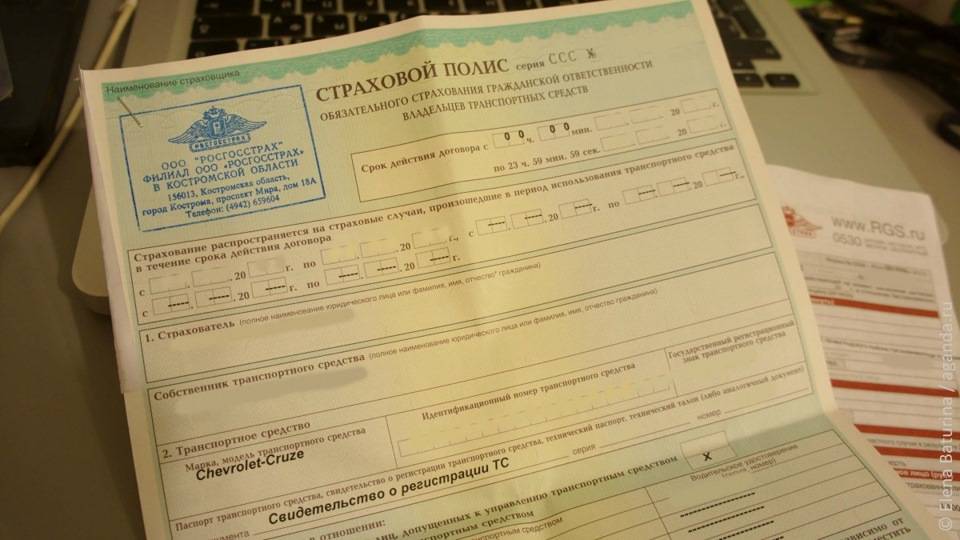 Наименование страховщика
СТРАХОВОЙ ПОЛИС серия ССС №
ОБЯЗАТЕЛЬНОГО СТРАХОВАНИЯ ГРАЖДАНСКОЙ ОТВЕТСТВЕННОСТИ
ВЛАДЕЛЬЦЕВ ТРАНСПОРТНЫХ СРЕДСТВ
РОСГОССТРАХ
ООО "РОСГОССТРАХ"
ФИЛИАЛ ООО «РОСГОССТРАХ»
В КОСТРОМСКОЙ ОБЛАСТИ
156013, Костромская область,
город Кострома, проспект Мира, дом 18А
Телефон: (4942) 659604
Срок действия договора с 00 ч. 00 мин. 20 г.
по 23 ч. 59 мин. 59 сек. 20 г.
Страхование распространяется на страховые случаи, произошедшие в период использования транспортного средства
в течение срока действия договора
с . . 20 г. по . . 20 г., с . . 20 г. по . . 20 г.,
с . . 20 г. по . . 20 г.
1. Страхователь (полное наименование юридического лица или фамилия, имя, отчество* гражданина)
Собственник транспортного средства (полное наименование юридического лица или фамилия, имя, отчество гражданина)
2. Транспортное средство
Марка, модель транспортного средства
Chevrolet-Cruze
Идентификационный номер транспортного средства
Государственный регистрационный
знак транспортного средства
Паспорт транспортного средства, свидетельство о регистрации транспортного средства, технический паспорт, технический талон (либо аналогичный документ)
Свидетельство о регистрации ТС
серия
номер
X
допущенных к управлению транспортным средством
Водительское удостоверение
номер)
www.RGS.ru
0530
© Elena Batunna / aganda.ru